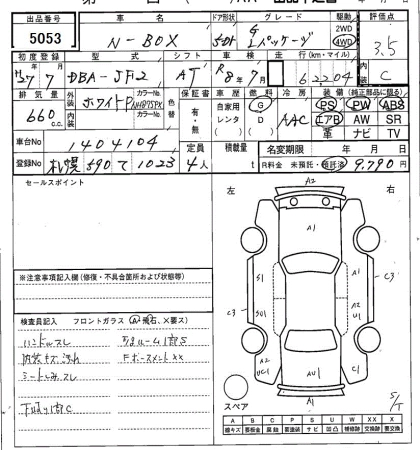 出品番号 車名 ドア形状 グレード 駆動 評価点
5053 N-BOX 5DH G Lパッケージ 2WD 4WD 3.5
初度登録 型式 シフト 車検 走行(km・マイル) 内装
H27/7 DBA-JF2 AT R8年7月 62204 C
排気量 外装 ホワイトP カラーNo. NH875PX 色替 保証書 車歴 燃料 冷房 装備(純正部品に限る)
660cc 内装 カラーNo. 有・無 自家用 G AAC PS PW ABS
レンタ D エアB AW SR
革 ナビ TV
車台No 1404104 定員 積載量 名変期限 年 月 日
登録No 札幌 590 て 1023 4人 t R料金 未預託・預託済 9,790円
セールスポイント
左 右
A2
A1
S1 A2
C3 SU1 U1 C3
A2 C2
UC1 AU1 C1
A1
スペア
S/T
※注意事項記入欄(修復・不具合箇所および状態等)
検査員記入 フロントガラス(A2飛石、X要ス)
ハンドルスレ
内装キズ汚れ
シートしみスレ
下廻り錆C
A B C P S U W X XX
線キズ 要板金 腐蝕 要塗装 サビ 凹凸 補修跡 交換跡 要交換